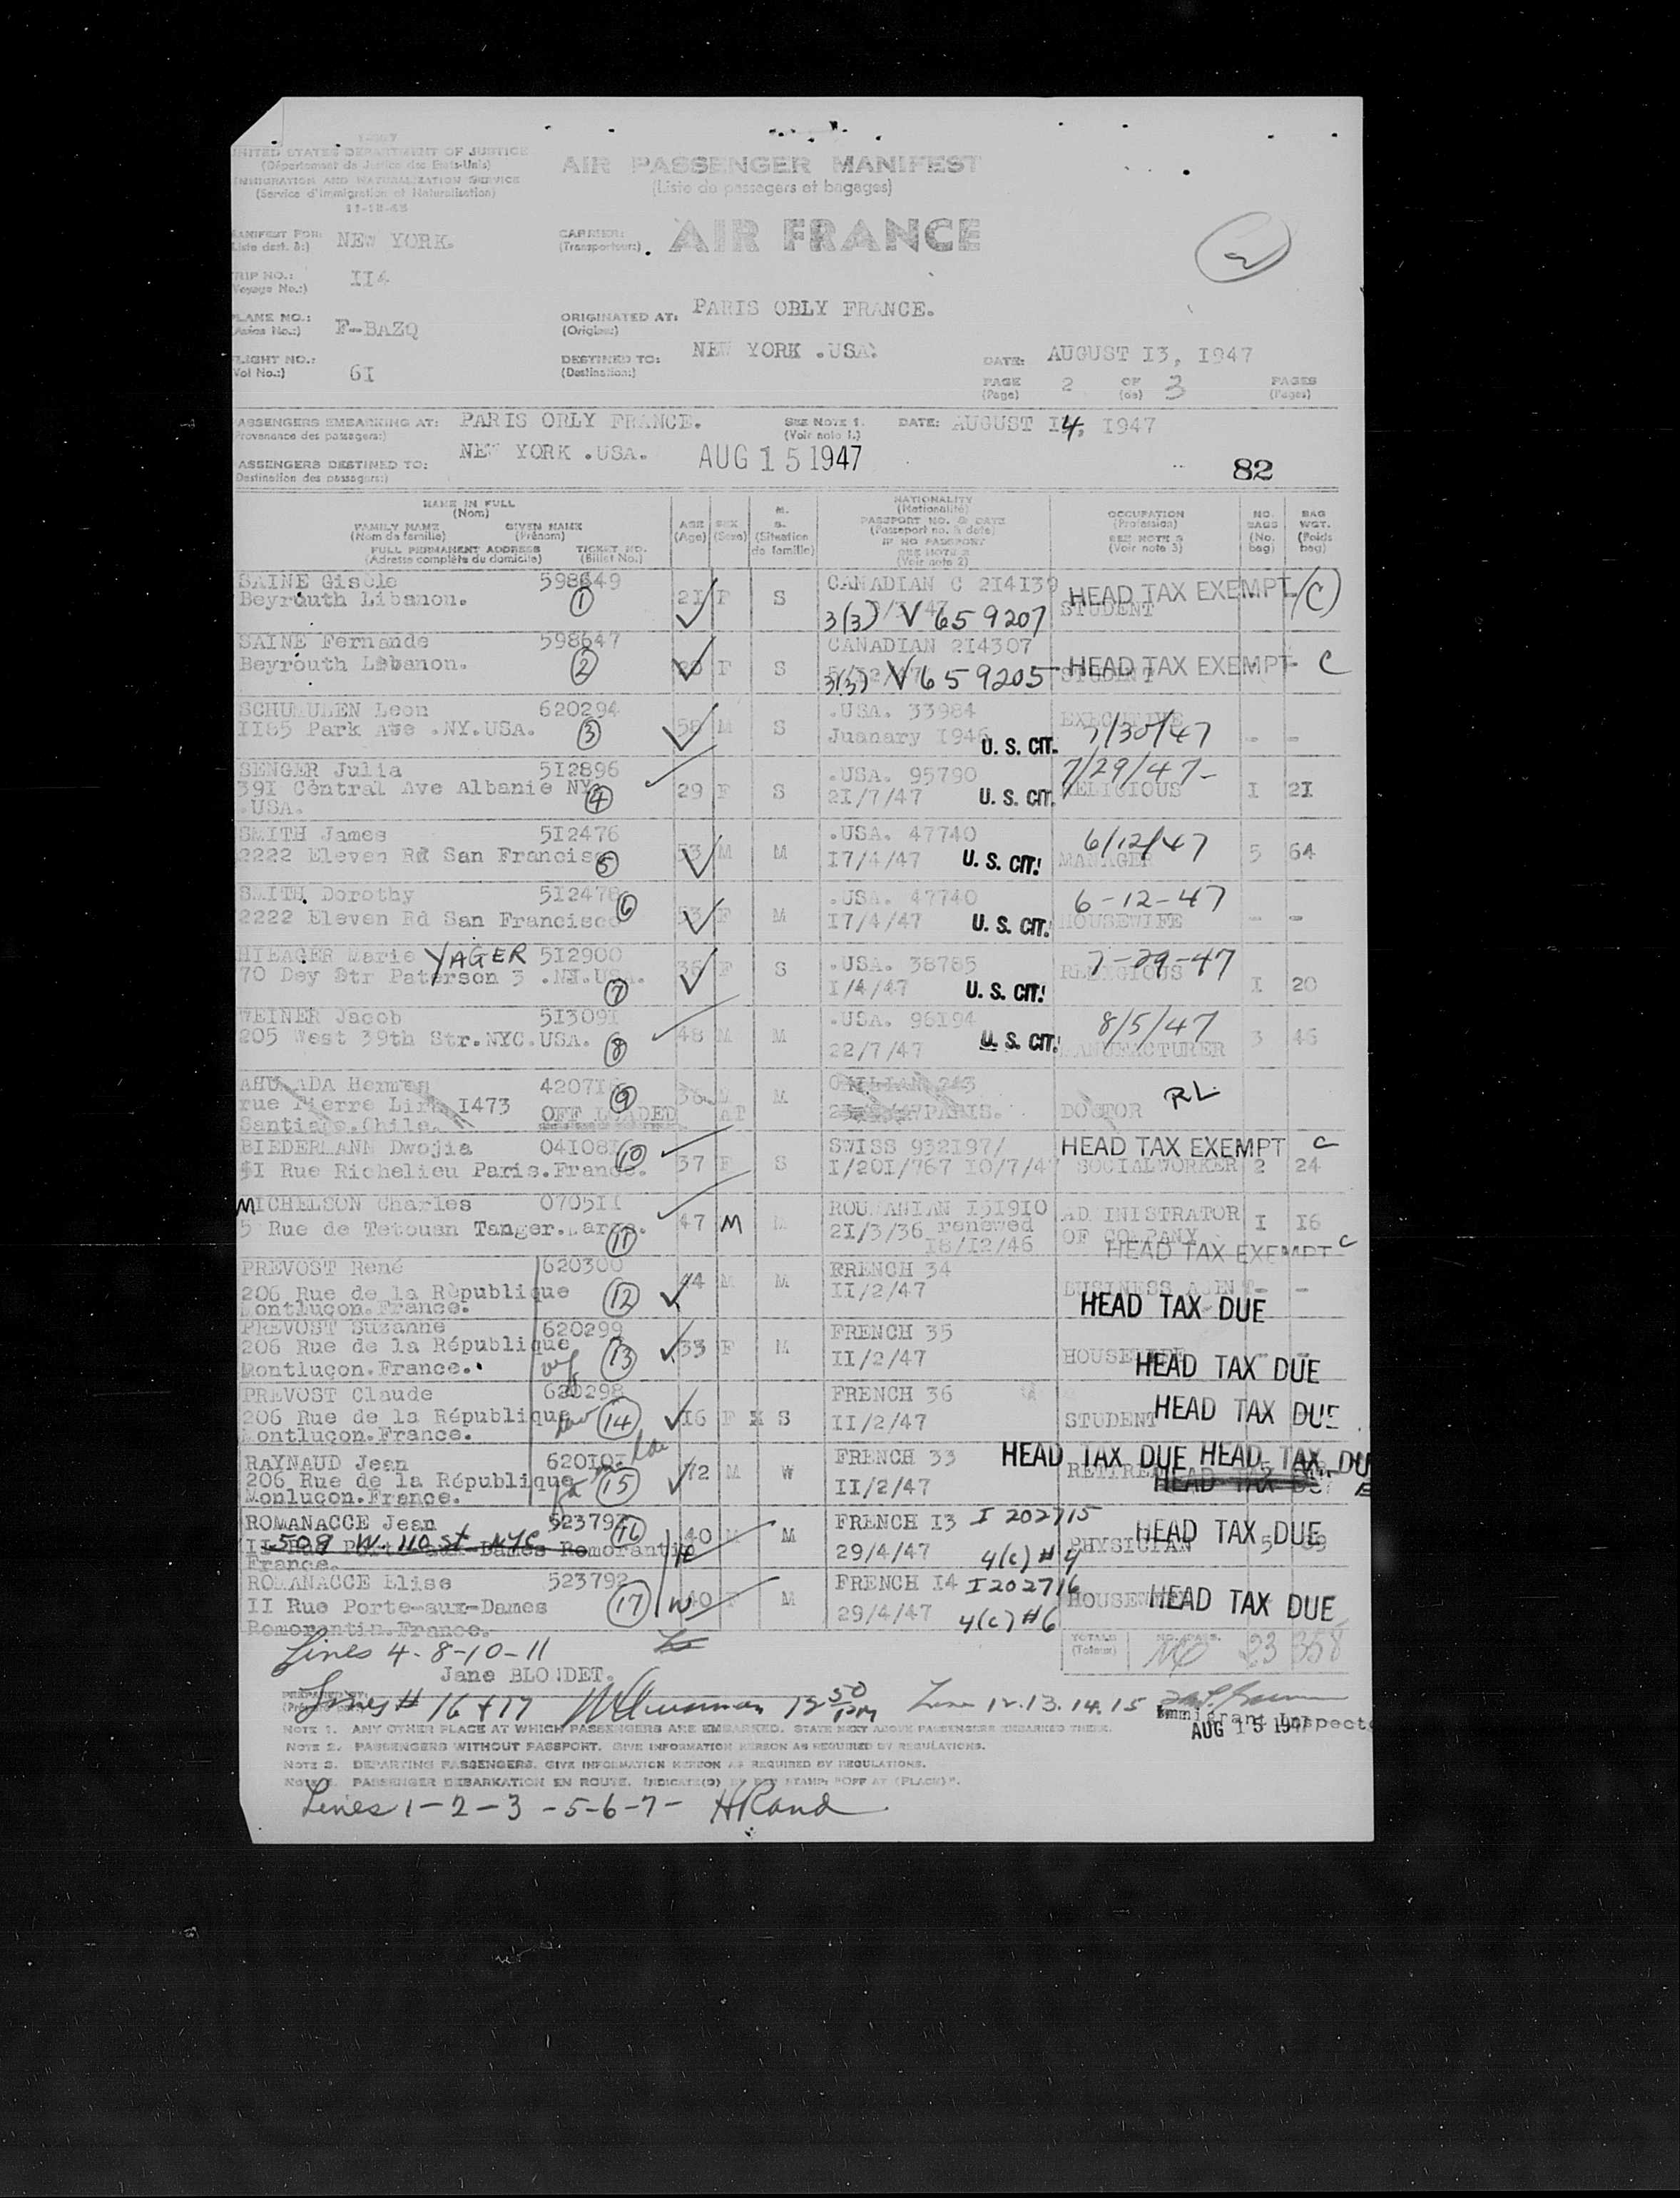 UNITED STATES DEPARTMENT OF JUSTICE
(Département de Justice des Etats-Unis)
IMMIGRATION AND NATURALIZATION SERVICE
(Service d'Immigration et Naturalisation)
11-18-43
AIR PASSENGER MANIFEST
(Liste de passagers et bagages)
MANIFEST FOR: NEW YORK.
(Liste dest. à:)
CARRIER: AIR FRANCE
(Transporteur:)
2
TRIP NO.: II4
(Voyage No.:)
PLANE NO.: F-BAZQ
(Avion No.:)
ORIGINATED AT: PARIS ORLY FRANCE.
(Origine:)
FLIGHT NO.: 6I
(Vol No.:)
DESTINED TO: NEW YORK .USA.
(Destination:)
DATE: AUGUST I3, I947
PAGE 2 OF 3 PAGES
(Page) (de) (Pages)
PASSENGERS EMBARKING AT: PARIS ORLY FRANCE. SEE NOTE 1. DATE: AUGUST I4, I947
Provenance des passagers:) (Voir note 1.)
PASSENGERS DESTINED TO: NEW YORK .USA. AUG 15 1947 82
Destination des passagers:)
NAME IN FULL
(Nom)
FAMILY NAME GIVEN NAME
(Nom de famille) (Prénom)
FULL PERMANENT ADDRESS TICKET NO.
(Adresse complète du domicile) (Billet No.)
AGE
(Age)
SEX
(Sexe)
M.
S.
(Situation
de famille)
NATIONALITY
(Nationalité)
PASSPORT NO. & DATE
(Passeport no. & date)
IF NO PASSPORT
SEE NOTE 2
(Voir note 2)
OCCUPATION
(Profession)
SEE NOTE 3
(Voir note 3)
NO.
BAGS
(No.
bag)
BAG
WGT.
(Poids
bag)
SAINE Gisèle 598649 21 F S CANADIAN C 2I4I39 HEAD TAX EXEMPT (C)
Beyrouth Libanon. 1 3(3) V 659207 STUDENT
SAINE Fernande 598647 F S CANADIAN 2I4307 HEAD TAX EXEMPT C
Beyrouth Lebanon. 2 3(3) V 659205 STUDENT
SCHUMULEN Leon 620294 58 M S .USA. 33984 EXECUTIVE - -
II85 Park Ave .NY.USA. 3 Juanary I946 U. S. CIT. 7/30/47
SENGER Julia 5I2896 29 F S .USA. 95790 7/29/47-
39I Central Ave Albanie NY. 4 2I/7/47 U. S. CIT. RELIGIOUS I 2I
.USA.
SMITH James 5I2476 53 M M .USA. 47740 6/12/47
2222 Eleven Rd San Francisc 5 I7/4/47 U. S. CIT. MANAGER 5 64
SMITH Dorothy 5I2478 6 53 F M .USA. 47740 6-12-47
2222 Eleven Rd San Francisco I7/4/47 U. S. CIT. HOUSEWIFE - -
Marie YAGER 5I2900 F S .USA. 38785 7-29-47
70 Dey Str Paterson 3 .NJ.USA. 7 I/4/47 U. S. CIT. RELIGIOUS I 20
WEINER Jacob 5I309I 48 M M .USA. 96I94 8/5/47
205 West 39th Str.NYC.USA. 8 22/7/47 U. S. CIT. MANUFACTURER 3 46
AHUMADA Hermes 9 36 M M RL
rue Pierre I473 OFF LOADED AT PARIS. DOCTOR
Santiago.Chile.
BIEDERMANN Dwojia 10 37 F S SWISS 932I97/ HEAD TAX EXEMPT C
I Rue Richelieu Paris.France. I/20I/767 I0/7/47 SOCIALWORKER 2 24
MICHELSON Charles 0705II 47 M M ROUMANIAN I5I9I0 ADMINISTRATOR I I6
5 Rue de Tetouan Tanger. 11 2I/3/36 renewed OF COMPANY
I8/I2/46 HEAD TAX EXEMPT C
PREVOST René 620300 44 M M FRENCH 34 BUSINESS - -
206 Rue de la République 12 II/2/47 HEAD TAX DUE
Montluçon.France.
PREVOST Suzanne 620299 33 F M FRENCH 35
206 Rue de la République 13 II/2/47 HOUSEWIFE HEAD TAX DUE
Montluçon.France.
PREVOST Claude 620298 I6 F S FRENCH 36
206 Rue de la République 14 II/2/47 STUDENT HEAD TAX DUE
Montluçon.France.
RAYNAUD Jean 72 M W FRENCH 33 HEAD TAX DUE HEAD TAX DUE
206 Rue de la République 15 II/2/47 RETIRED HEAD TAX DUE
Monluçon.France.
ROMANACCE Jean 16 40 M M FRENCH I3 I 202715 HEAD TAX DUE
509 W. 110 St NYC 29/4/47 4(c) #4 PHYSICIAN 5
II Rue Porte-aux-Dames Romorantin
France.
ROMANACCE Elise 523792 40 F M FRENCH I4 I202716 HOUSEWIFE HEAD TAX DUE
II Rue Porte-aux-Dames 17 29/4/47 4(c) #6
Romorantin.France.
TOTALS 23 358
(Totaux)
Lines 4-8-10-11
Jane BLONDET.
Lines # 16 & 17 12 50 PM Line 12.13.14.15
Immigrant Inspector
AUG 15 1947
NOTE 1. ANY OTHER PLACE AT WHICH PASSENGERS ARE EMBARKED. STATE NEXT ABOVE PASSENGERS EMBARKED THERE.
NOTE 2. PASSENGERS WITHOUT PASSPORT. GIVE INFORMATION HEREON AS REQUIRED BY REGULATIONS.
NOTE 3. DEPARTING PASSENGERS. GIVE INFORMATION HEREON AS REQUIRED BY REGULATIONS.
NOTE 4. PASSENGER DEBARKATION EN ROUTE. INDICATE(D) BY STAMP "OFF AT (PLACE)".
Lines 1-2-3-5-6-7- HRand